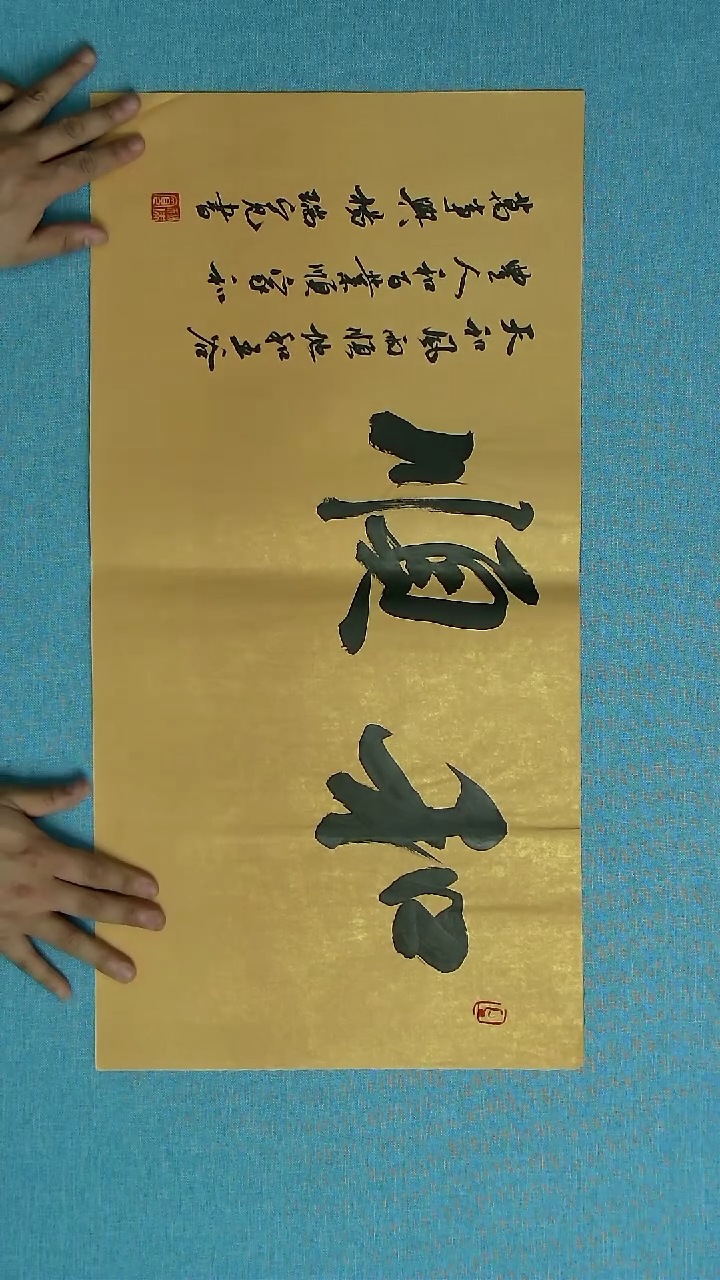 和順
天和風雨順地和五谷
豐人和百業順家和
萬事興楊瑞寬書